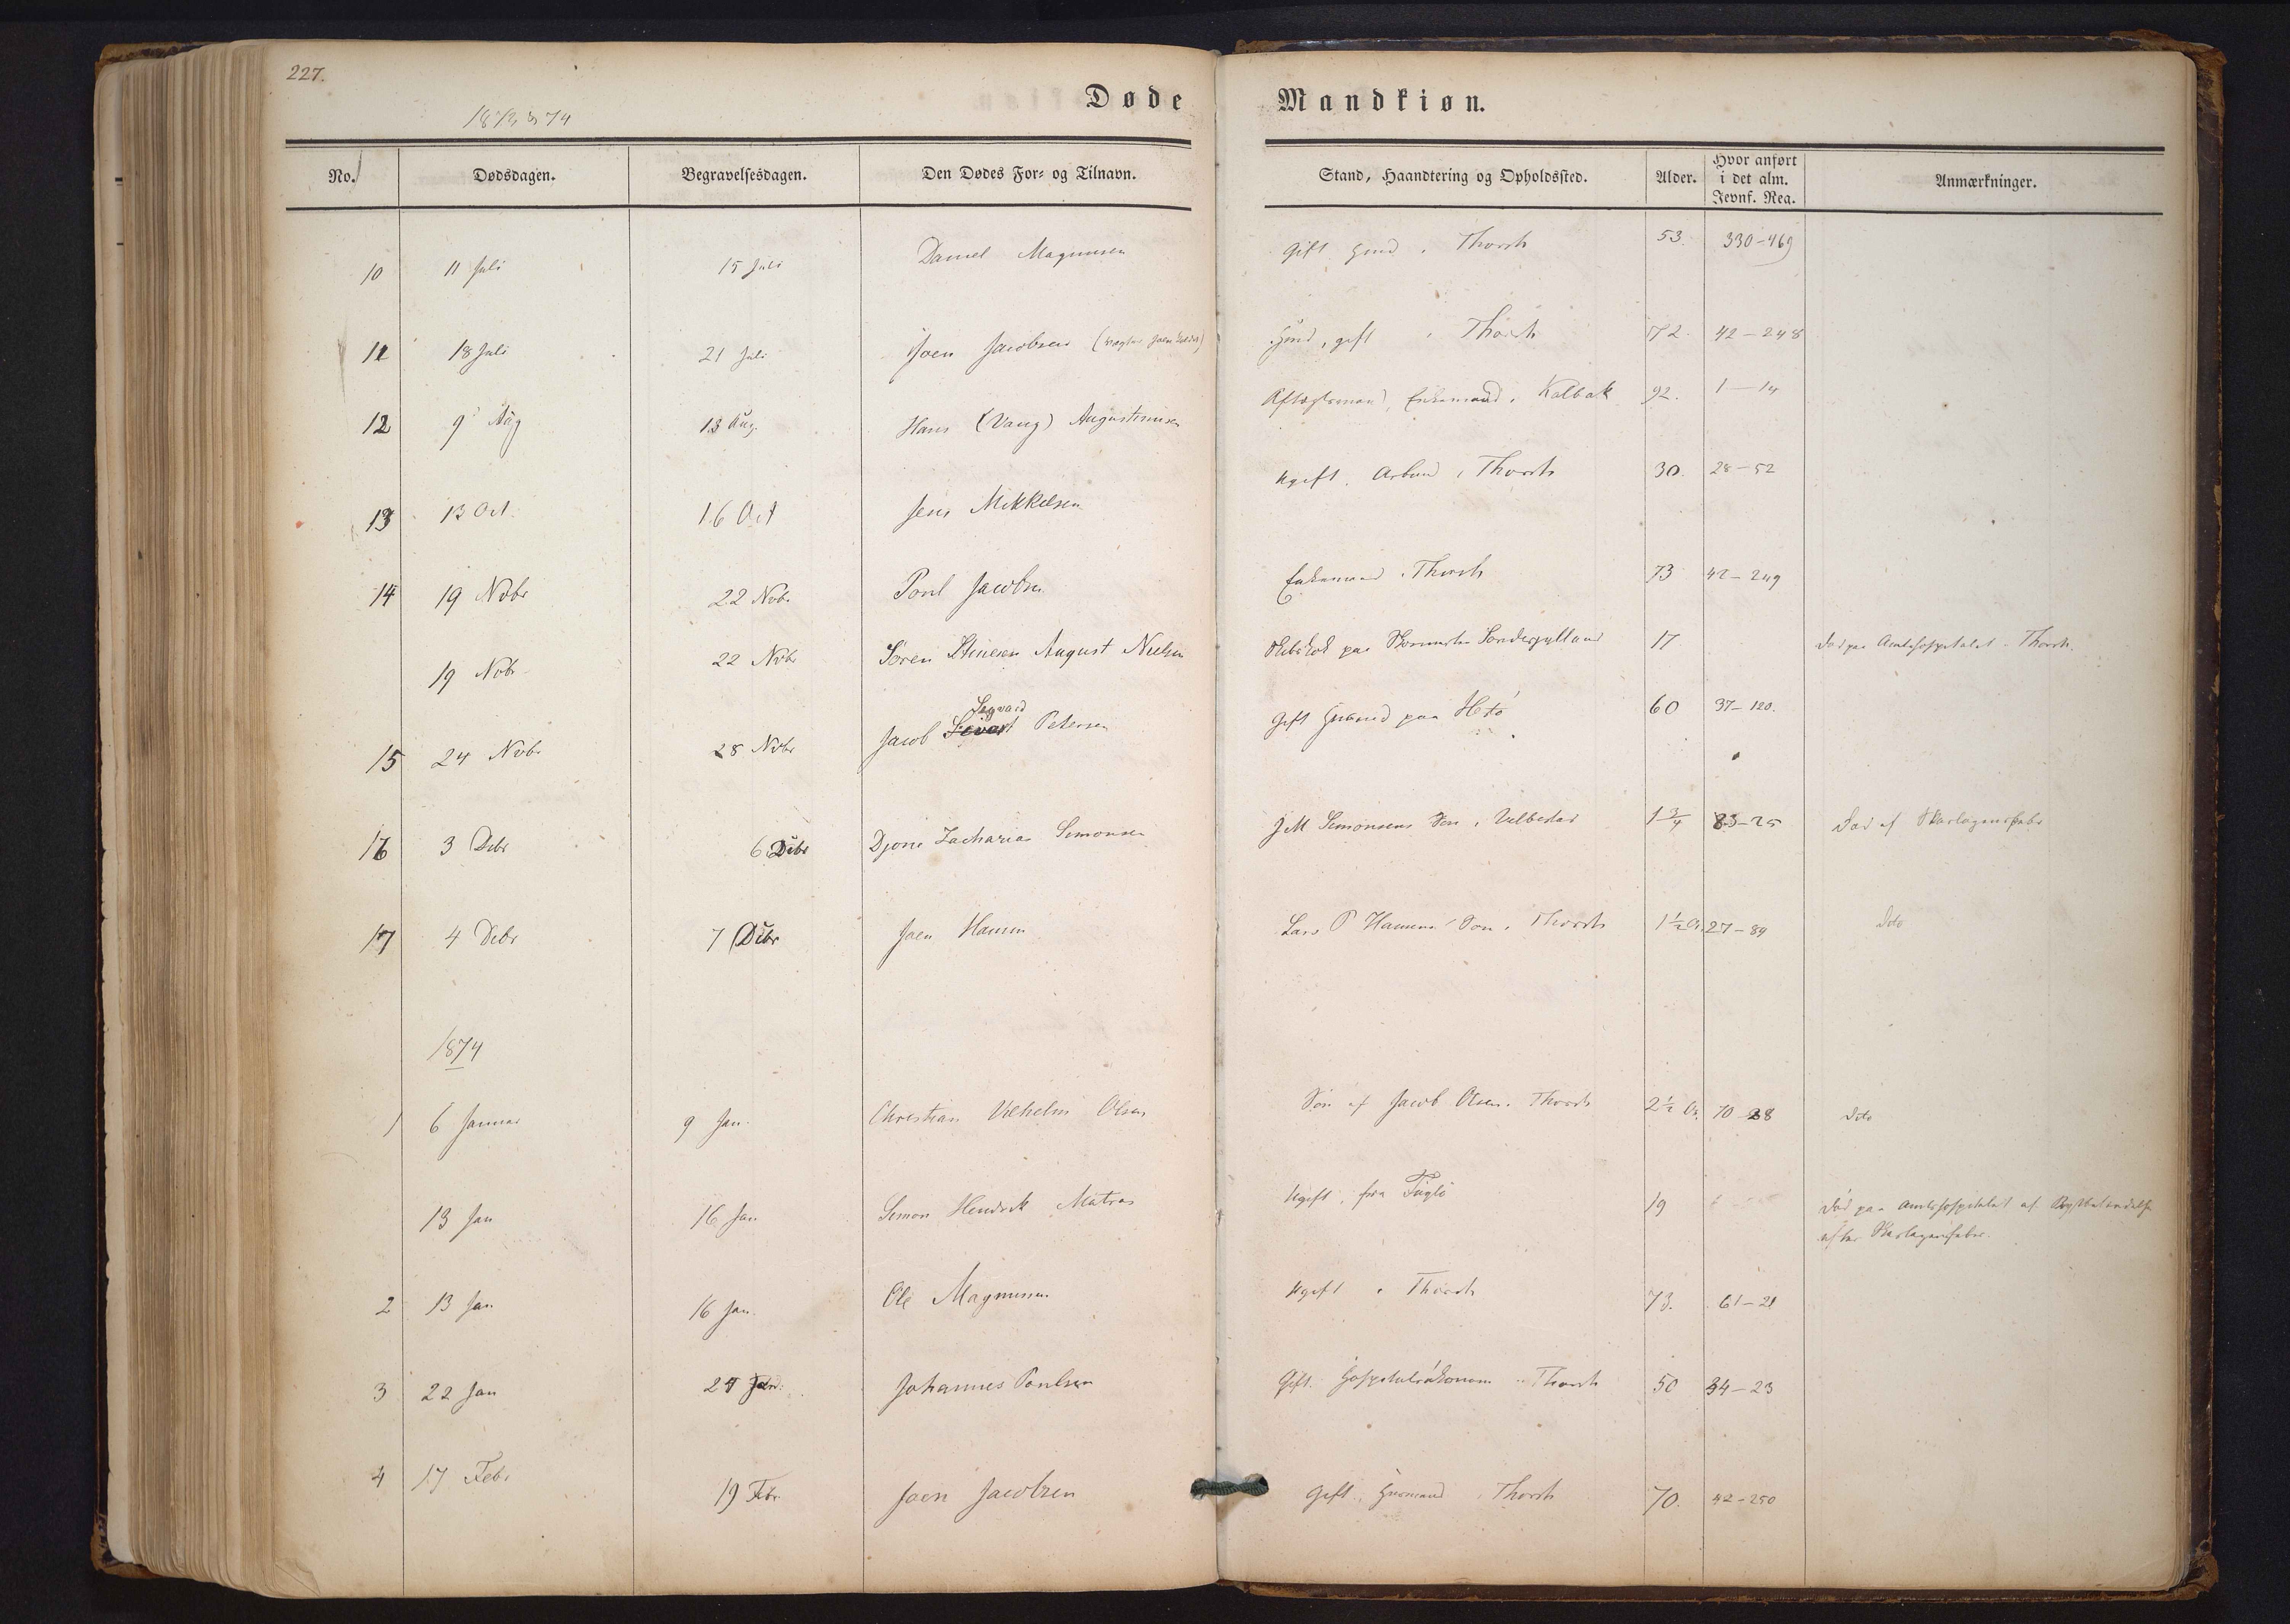 227.
1873 & 74
Døde Mandkiøn.
No. Dødsdagen. Begravelsesdagen. Den Dødes For- og Tilnavn. Stand, Haandtering og Opholdssted. Alder. Hvor anført i det alm. Jevnf. Reg. Anmærkninger.
10 11 Juli 15 Juli Daniel Magnusen Gift i Thorsh 53. 330-469
11 18 Juli 21 Juli Joen Jacobsen gift i Thorsh 72. 42-248
12 9 Aug 13 Aug. Hans (Vang) Augustinusen Aftægtsmand, Enkemand i Kalbak 92. 1-14
13 13 Oct. 16 Oct Jens Mikkelsen Ugift. Arbmd i Thorsh 30. 28-52
14 19 Nobr 22 Nobr Poul Jacobsen Enkemand i Thorsh 73 42-249
19 Nobr 22 Nobr Sören August Nielsen paa Sønderjylland 17 Død paa Amtshospitalet i Thorsh.
15 24 Nobr 28 Nobr Jacob Sivart Sigvard Petersen Gift Huusmd paa Hestø 60 37-120.
16 3 Debr 6 Debr Djoni Zacharias Simonsen J M Simonsens Søn i Velbestad 1 3/4 83-25 Død af Skarlagensfeber
17 4 Debr 7 Debr Joen Hansen Lars P Hansens Søn i Thorsh 1 1/2 A. 27-89 Dito
1874
1 6 Januar 9 Jan. Christian Vilhelm Olsen Søn af Jacob Olsen i Thorsh 2 1/2 A. 70-28 Dito
13 Jan 16 Jan Simon Hendrik Matras Ugift, fra Fuglø 19 Død paa Amtshospitalet af Brystbetændelse
efter Skarlagensfeber.
2 13 Jan 16 Jan. Ole Magnusen Ugift i Thorsh 73. 61-21
3 22 Jan 24 Jan. Johannes Poulsen Gift. Hospitalsøkonom i Thorsh 50 34-23
4 17 Febr 19 Febr. Joen Jacobsen Gift, Huusmand i Thorsh 70. 42-250